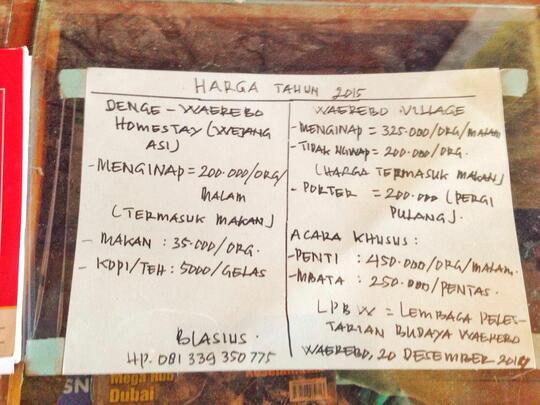 HARGA TAHUN 2015
DENGE - WAEREBO
HOMESTAY (WEJANG
ASI)
- MENGINAP = 200.000/ORG/
MALAM
(TERMASUK MAKAN)
- MAKAN : 35.000/ORG.
- KOPI/TEH : 5000/GELAS
BLASIUS.
HP. 081 339 350 775
WAEREBO VILLAGE
- MENGINAP = 325.000/ORG/MALAM
- TIDAK NGINAP = 200.000/ORG.
(HARGA TERMASUK MAKAN)
- PORTER = 200.000 (PERGI
PULANG).
ACARA KHUSUS :
- PENTI : 450.000/ORG/MALAM.
- MBATA : 250.000/PENTAS.
LPBW = LEMBAGA PELES-
TARIAN BUDAYA WAEREBO
WAEREBO, 20 DESEMBER
SN
Mega Hub
Dubai